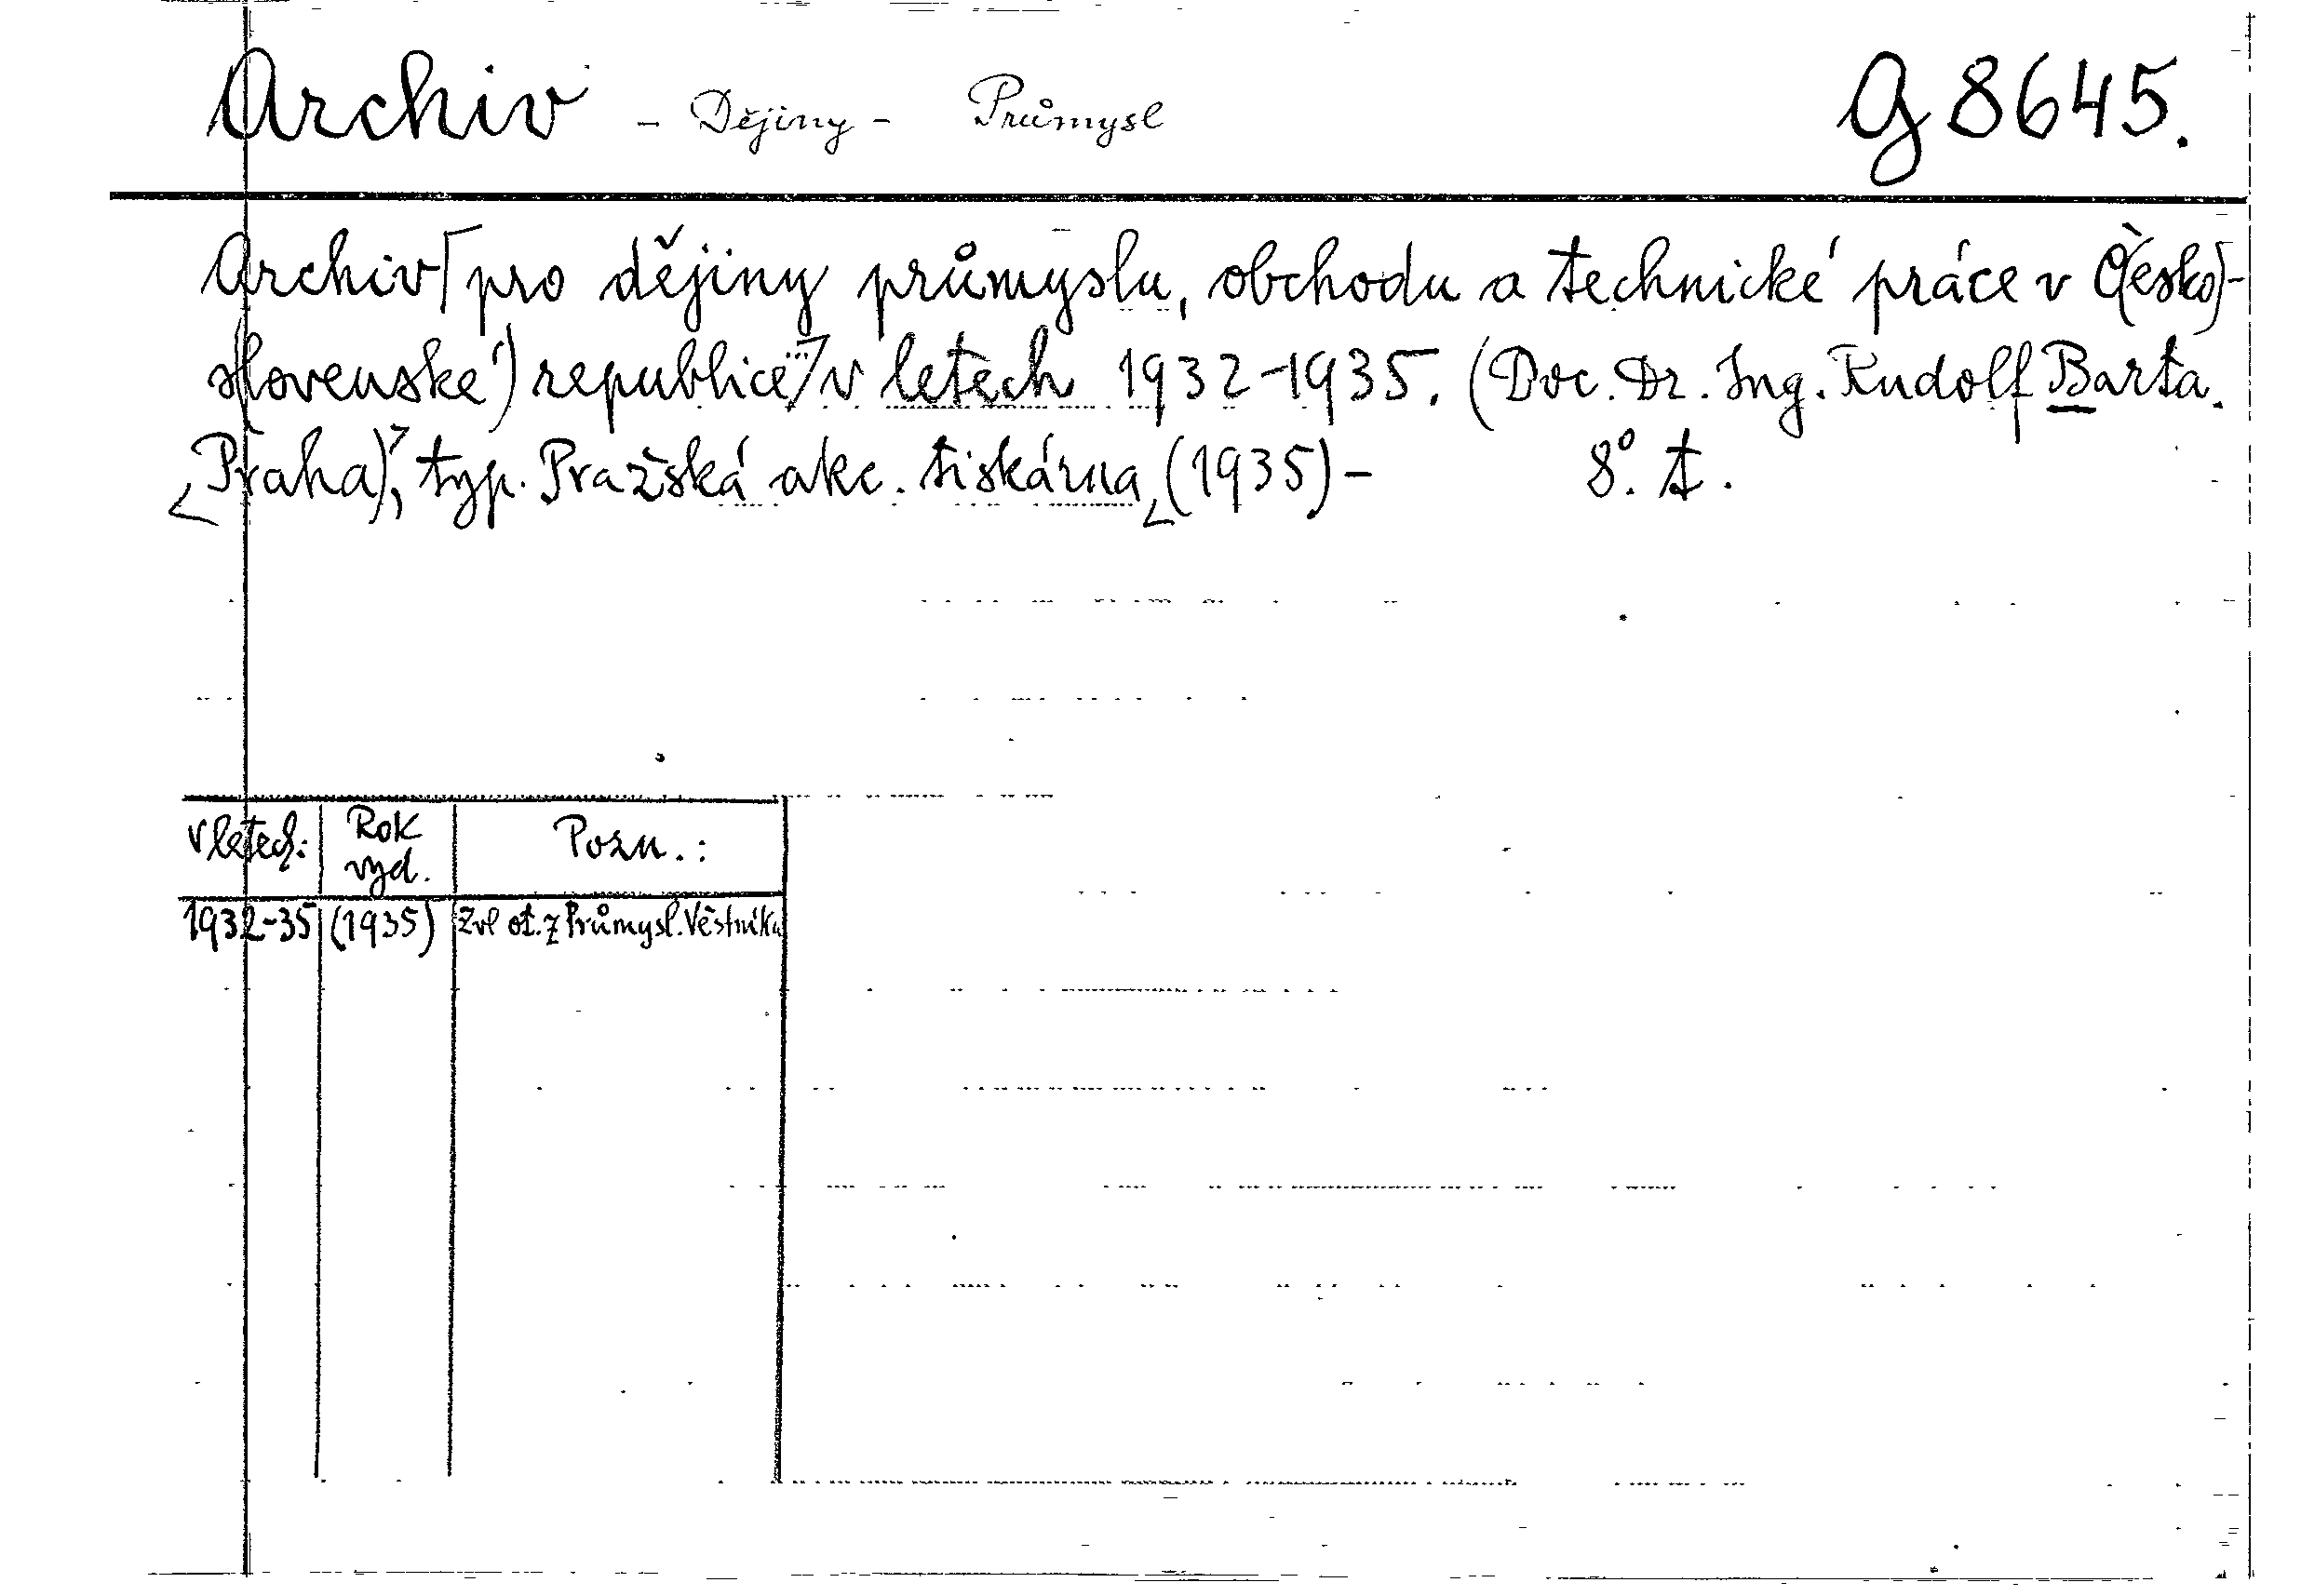 Archiv - Dějiny - Průmysl G 8645.
Archiv[pro dějiny průmyslu, obchodu a technické práce v Č(esko)-
s(lovenské) republice...] v letech 1932-1935. (Doc. Dr. Ing. Rudolf Barta.
<Praha)>, typ. Pražská akc. tiskárna <(1935) - 8°. t.
V letech: Rok vyd. Pozn.:
1932-35 (1935) Zvl. ot. z Průmysl. Věstníku